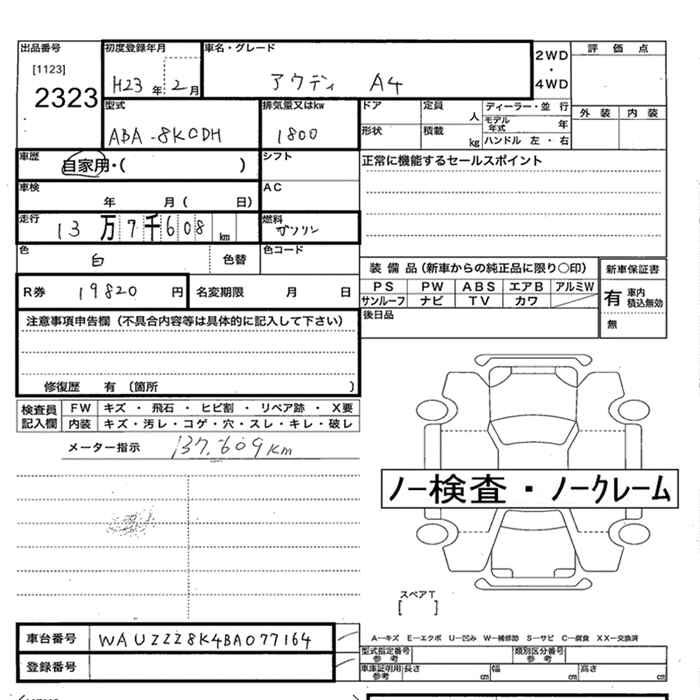 出品番号 初度登録年月 車名・グレード 2WD・4WD 評価点
[1123]
2323 H23年 2月 アウディ A4
型式 排気量又はkw ドア 定員 人 ディーラー・並行 外装 内装
ABA-8KCDH 1800 形状 積載 kg モデル年式 年
ハンドル 左・右
車歴 自家用・( ) シフト 正常に機能するセールスポイント
車検 年 月( 日) AC
走行 13万7千608km 燃料 ガソリン
色 白 色替 色コード
装備品(新車からの純正品に限り○印) 新車保証書
R券 19820円 名変期限 月 日 PS PW ABS エアB アルミW 有 車内積込無効
サンルーフ ナビ TV カワ
注意事項申告欄(不具合内容等は具体的に記入して下さい) 後日品 無
修復歴 有(箇所 )
検査員記入欄 FW キズ・飛石・ヒビ割・リペア跡・X要
内装 キズ・汚レ・コゲ・穴・スレ・キレ・破レ
メーター指示 137,609km
ノー検査・ノークレーム
スペアT
[ ]
車台番号 WAUZZZ8K4BA077164 A−キズ E−エクボ U−凹み W−補修跡 S−サビ C−腐食 XX−交換済
型式指定番号 参考 類別区分番号 参考
登録番号 車庫証明用 参考 長さ cm 幅 cm 高さ cm